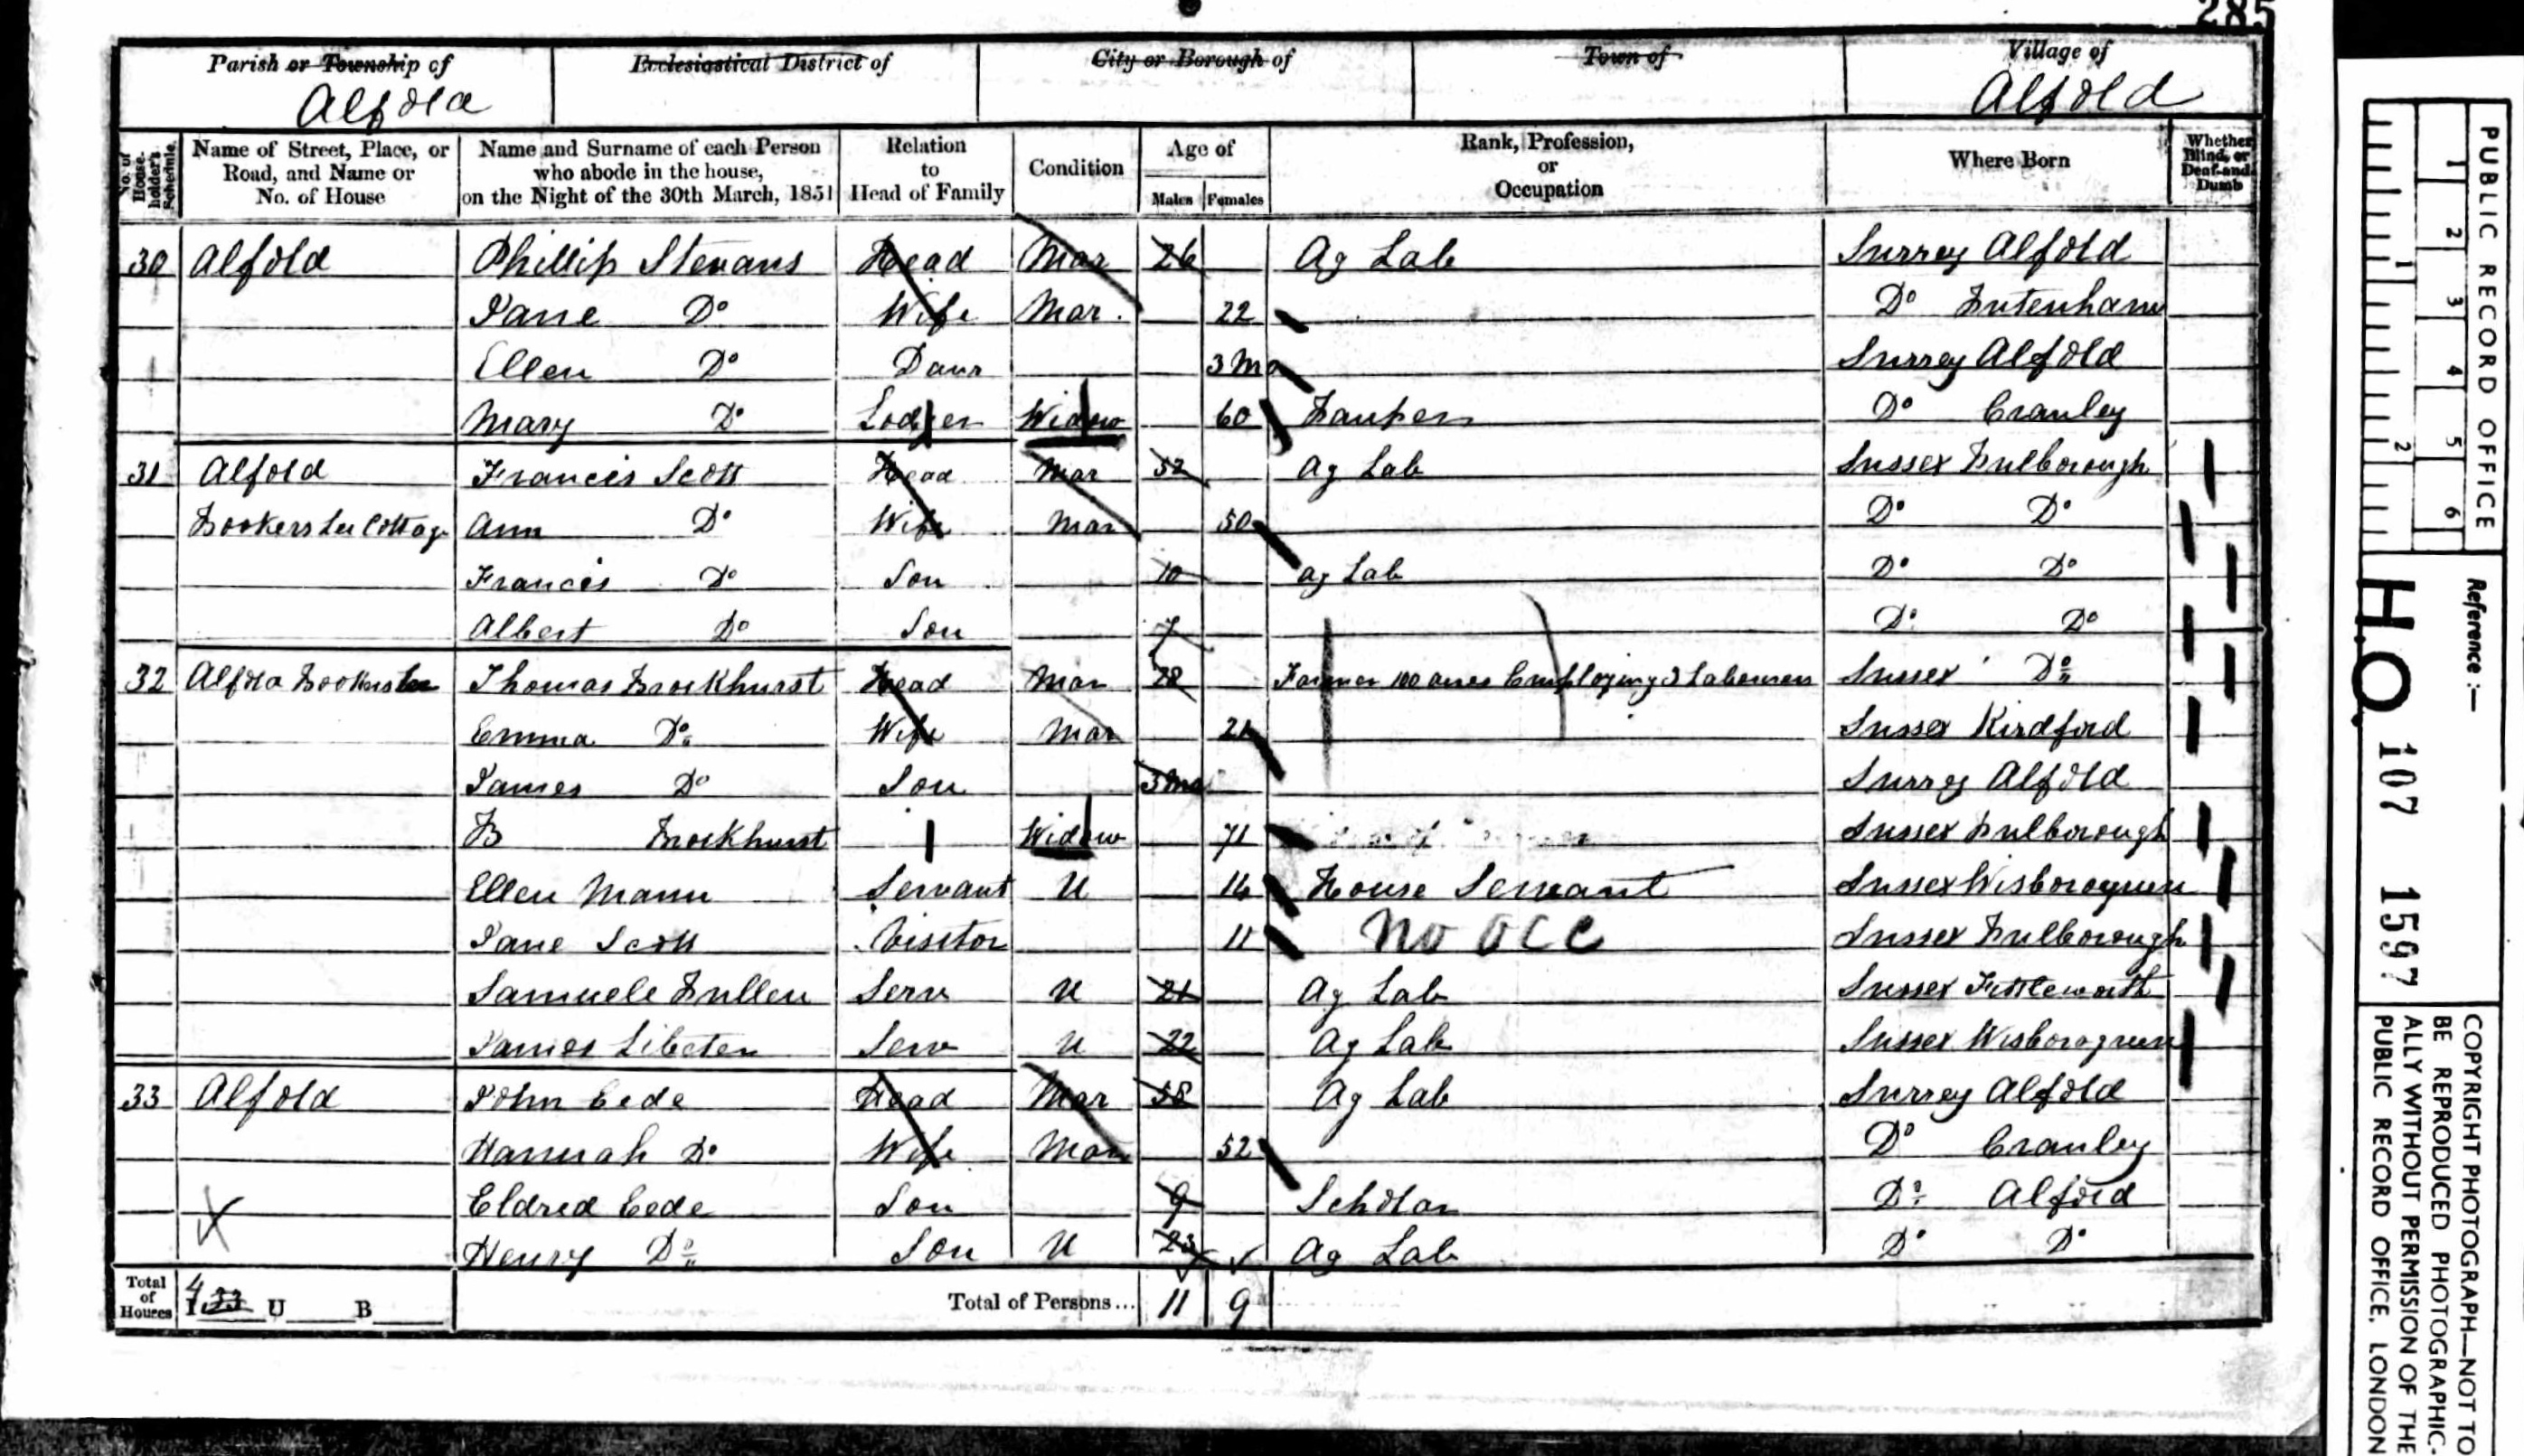 285
Parish or Township of
Alfold
Ecclesiastical District of
City or Borough of
Town of
Village of
Alfold
No. of House-holder's Schedule
Name of Street, Place, or Road, and Name or No. of House
Name and Surname of each Person who abode in the house, on the Night of the 30th March, 1851
Relation to Head of Family
Condition
Age of
Males Females
Rank, Profession, or Occupation
Where Born
Whether Blind, or Deaf-and-Dumb
30 Alfold Phillip Stevans Head Mar 26 Ag Lab Surrey Alfold
Jane Do Wife Mar. 22 Do Putenham
Ellen Do Daur 3 Mo Surrey Alfold
Mary Do Lodger Widow 60 Pauper Do Cranley
31 Alfold Francis Scott Head Mar 52 Ag Lab Sussex Pulborough
Bookers Lee Cottage Ann Do Wife Mar 50 Do Do
Francis Do Son 10 ag Lab Do Do
Albert Do Son 7 Do Do
32 Alfold Bookers Lee Thomas Brockhurst Head Mar 28 Farmer 100 acres Employing 3 Labourers Sussex Do
Emma Do Wife Mar 21 Sussex Kirdford
James Do Son 3 Mo Surrey Alfold
B Brockhurst Widow 71 Sussex Pulborough
Ellen Mann Servant U 16 House Servant Sussex Wisborogreen
Jane Scott Visitor 11 no occ Sussex Pulborough
Samuele Pullen Serv U 21 Ag Lab Sussex Fittleworth
James Libeter Serv U 22 Ag Lab Sussex Wisborogreen
33 Alfold John Eede Head Mar 58 Ag Lab Surrey Alfold
Hannah Do Wife Mar 52 Do Cranley
Eldred Eede Son 9 Scholar Do Alfold
Henry Do Son U 23 Ag Lab Do Do
Total of Houses 4 I 33 U B Total of Persons... 11 9
PUBLIC RECORD OFFICE
1 2 3 4 5 6
1 2
Reference :—
H.O. 107 1597
COPYRIGHT PHOTOGRAPH—NOT TO
BE REPRODUCED PHOTOGRAPHIC-
ALLY WITHOUT PERMISSION OF THE
PUBLIC RECORD OFFICE, LONDON